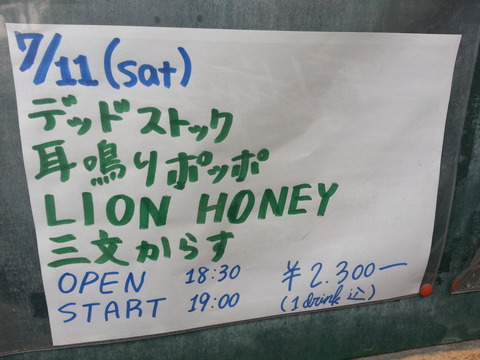 7/11(sat)
デッドストック
耳鳴りポッポ
LION HONEY
三文からす
OPEN 18:30 ¥2.300—
START 19:00 (1drink込)